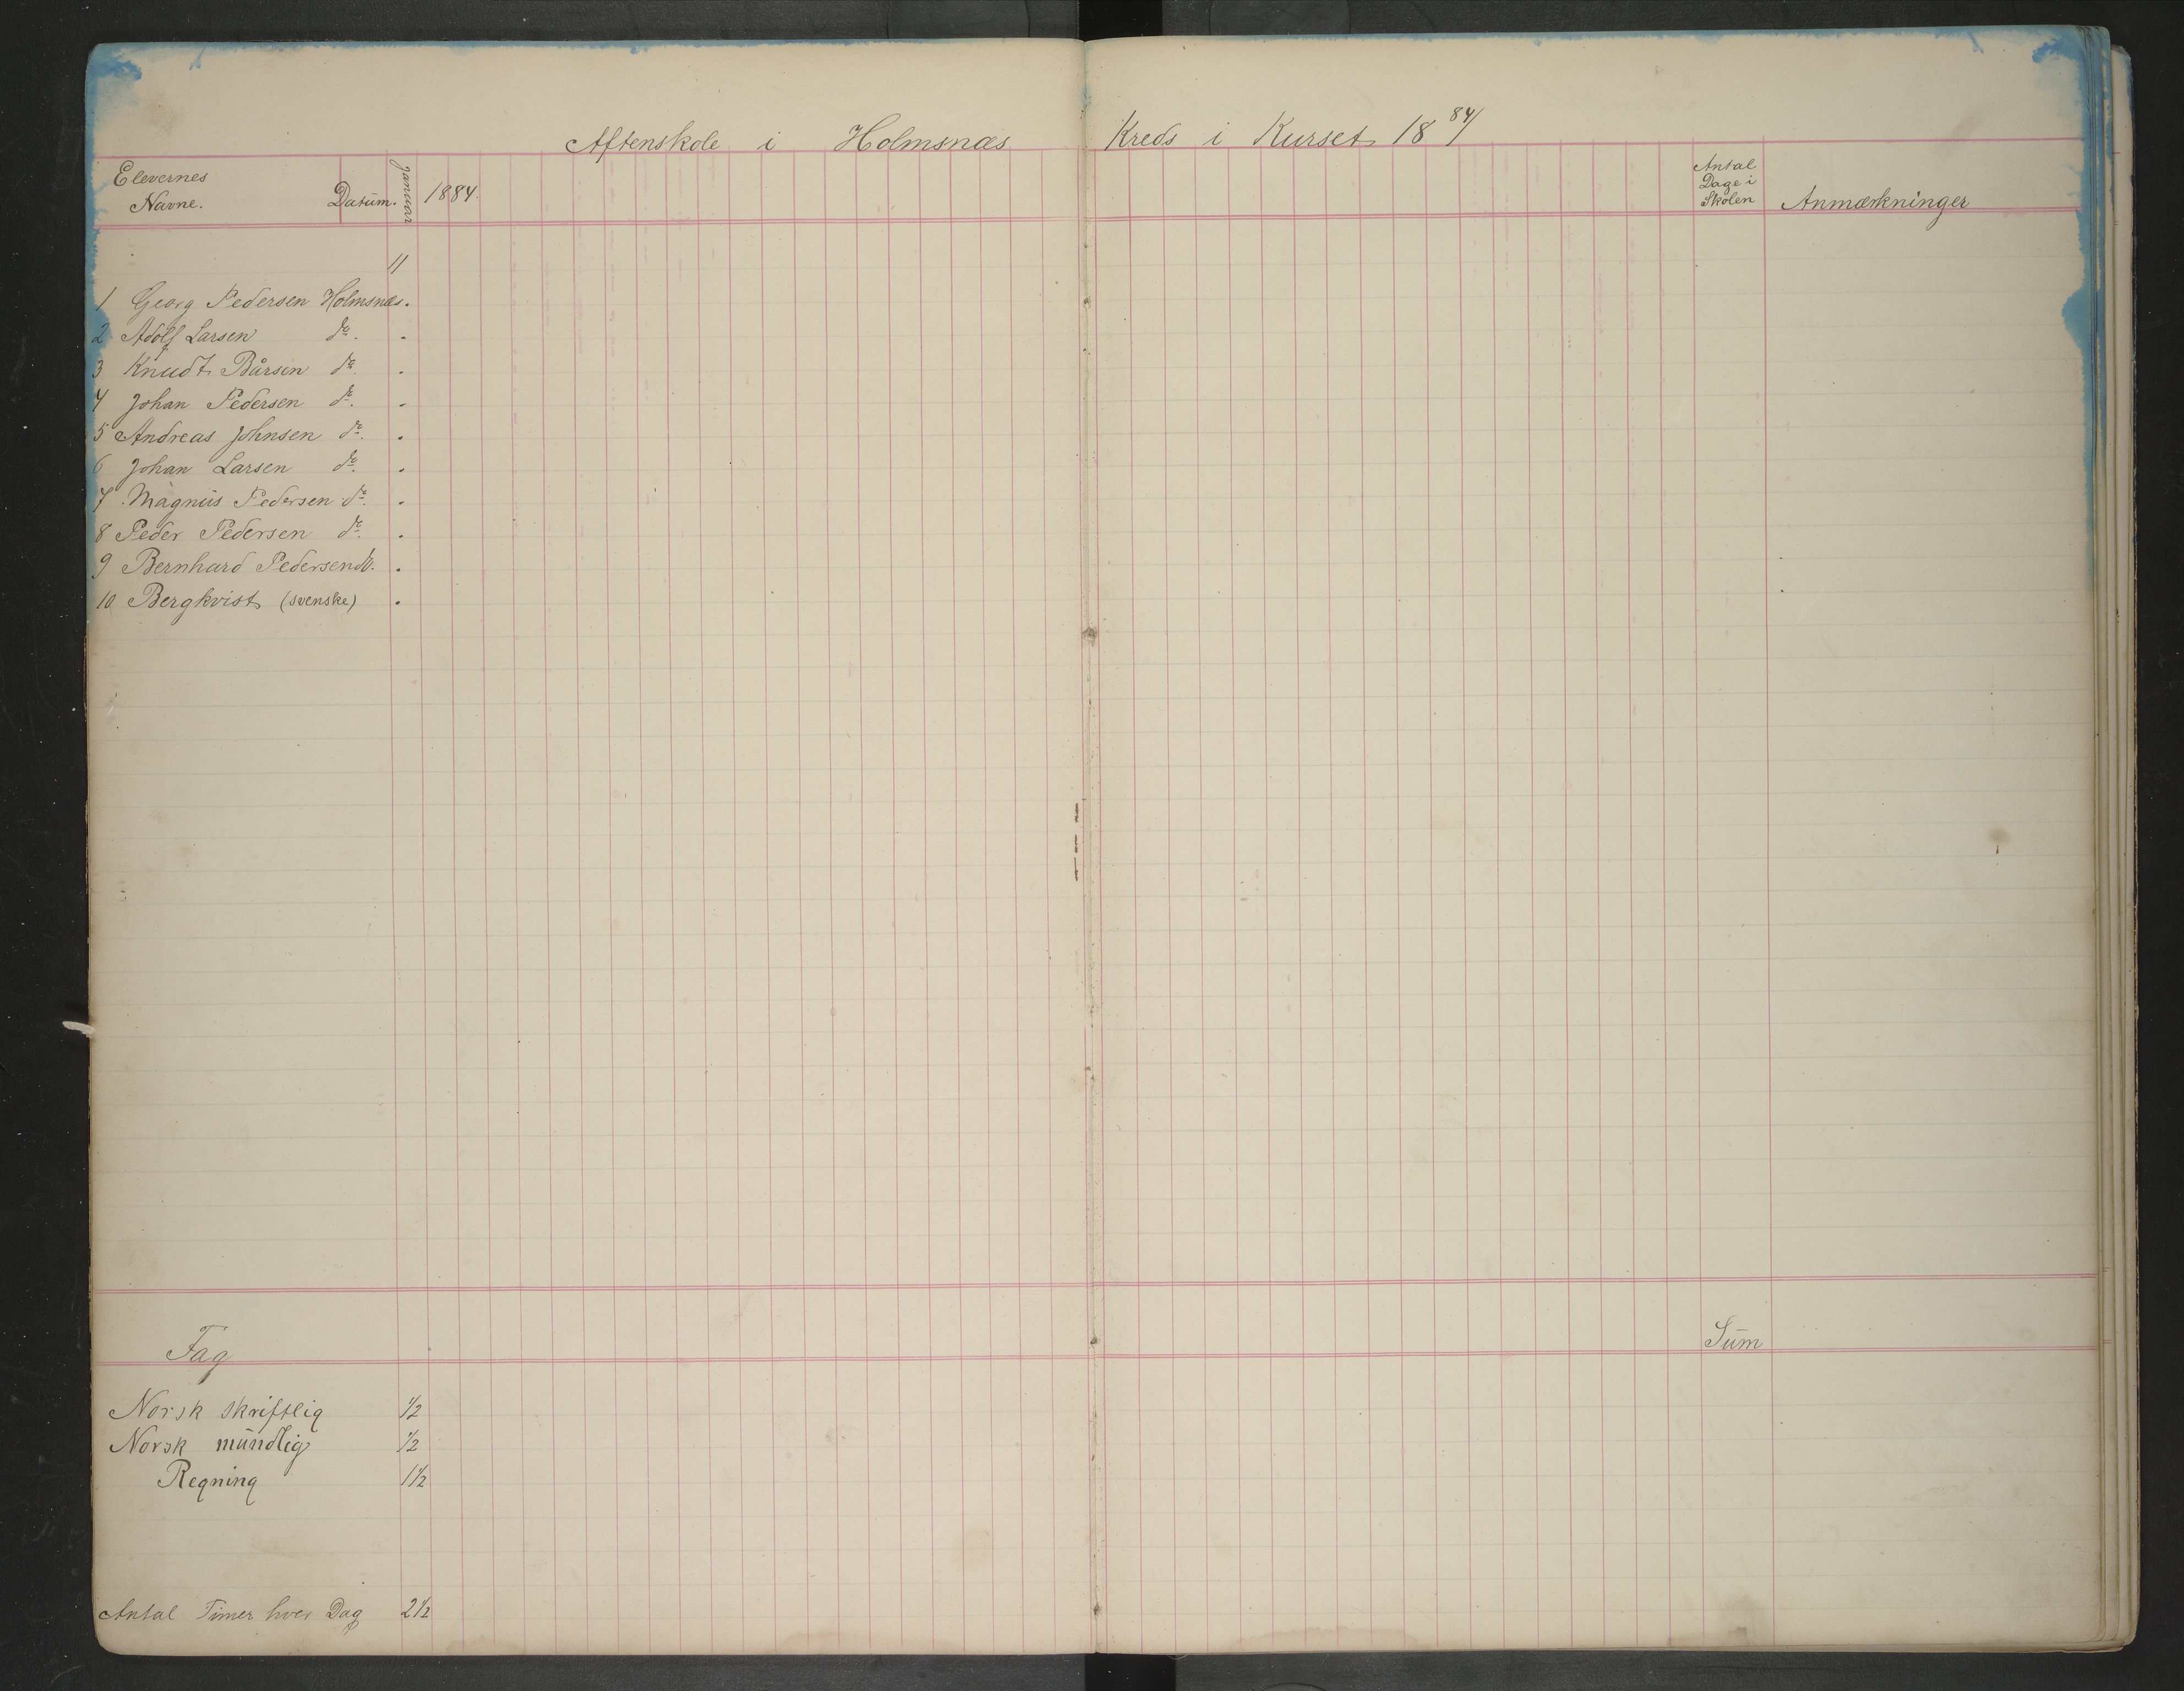 Aftenskole i Holmsnæs Kreds i Kurset 18 84/
Elevernes Navne. Datum. Januar 1884. Antal Dage i Skolen Anmærkninger
11
1 Georg Pedersen Holmsnæs.
2 Adolf Larsen do. .
3 Knudt Bårsen do. .
4 Johan Pedersen do. .
5 Andreas Johnsen do. .
6 Johan Larsen do. .
7 Magnus Pedersen do. .
8 Peder Pedersen do. .
9 Bernhard Pedersen do. .
10 Bergkvist (svenske) .
Fag Sum
Norsk skriftlig 1/2
Norsk mundlig 1/2
Regning 1 1/2
Antal Timer hver Dag 2 1/2